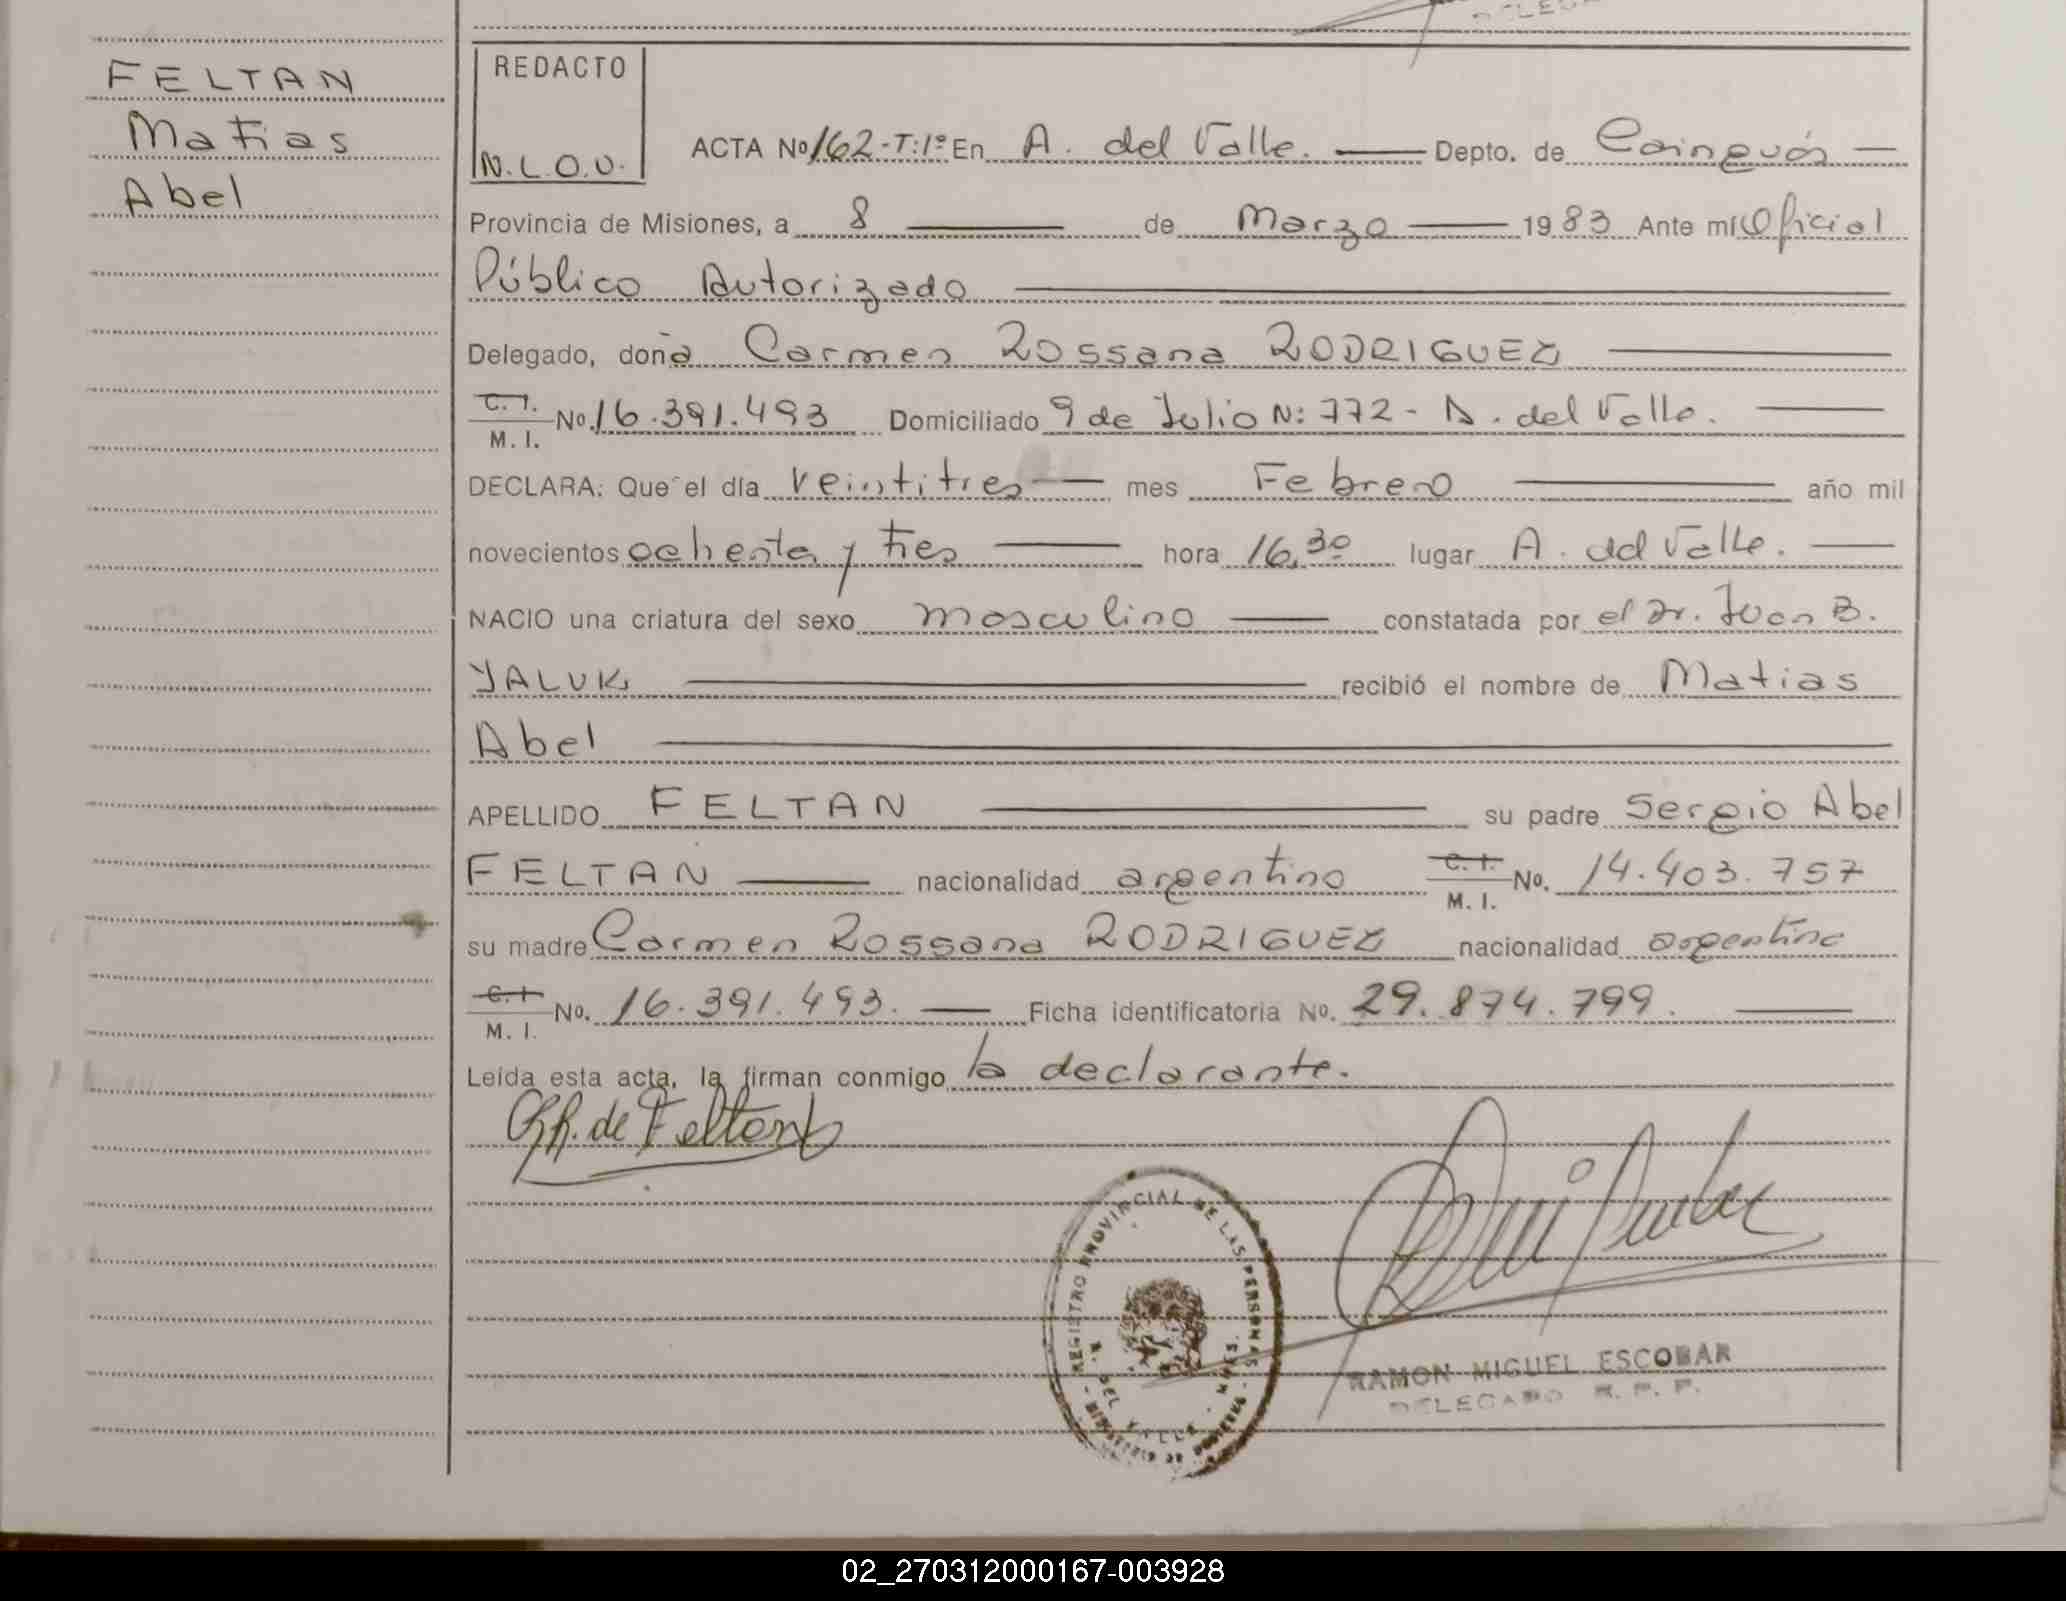 FELTAN
Matias
Abel
REDACTO
N.L.O.U.
ACTA Nº 162-T:1º En A. del Valle. Depto. de Cainguás
Provincia de Misiones, a 8 de Marzo 1983 Ante mí Oficial
Público Autorizado
Delegado, doña Carmen Rossana RODRIGUEZ
C. I.
M. I. No. 16.391.493 Domiciliado 9 de Julio N: 772 - A. del Valle.
DECLARA: Que el día veintitres mes Febrero año mil
novecientos ochenta y tres hora 16,30 lugar A. del Valle.
NACIO una criatura del sexo masculino constatada por el Dr. Juan B.
YALUK recibió el nombre de Matias
Abel
APELLIDO FELTAN su padre Sergio Abel
FELTAN nacionalidad argentino C. I.
M. I. No. 14.403.757
su madre Carmen Rossana RODRIGUEZ nacionalidad argentina
C. I.
M. I. No. 16.391.493. Ficha identificatoria No. 29.874.799.
Leída esta acta, la firman conmigo la declarante.
de Feltan
REGISTRO PROVINCIAL DE LAS PERSONAS
A. DEL VALLE
RAMON MIGUEL ESCOBAR
DELEGADO R. P. P.
02_270312000167-003928